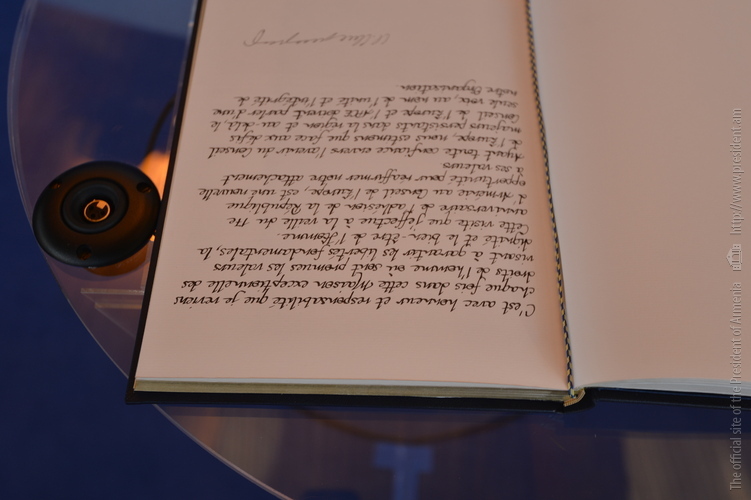 C'est avec honneur et responsabilité que je reviens
chaque fois dans cette Maison exceptionnelle des
droits de l'homme où sont promues les valeurs
visant à garantir les libertés fondamentales, la
dignité et le bien-être de l'Homme.
Cette visite que j'effectue à la veille du 11e
anniversaire d'adhésion de la République
d'Arménie au Conseil de l'Europe, est une nouvelle
opportunité pour réaffirmer notre attachement
à ses valeurs.
Ayant toute confiance envers l'avenir du Conseil
de l'Europe, nous estimons que face aux défis
majeurs persistants dans la région et au delà, le
Conseil de l'Europe et l'APCE doivent parler d'une
seule voix, au nom de l'unité et l'intégrité de
notre Organisation.
The official site of the President of Armenia http://www.president.am